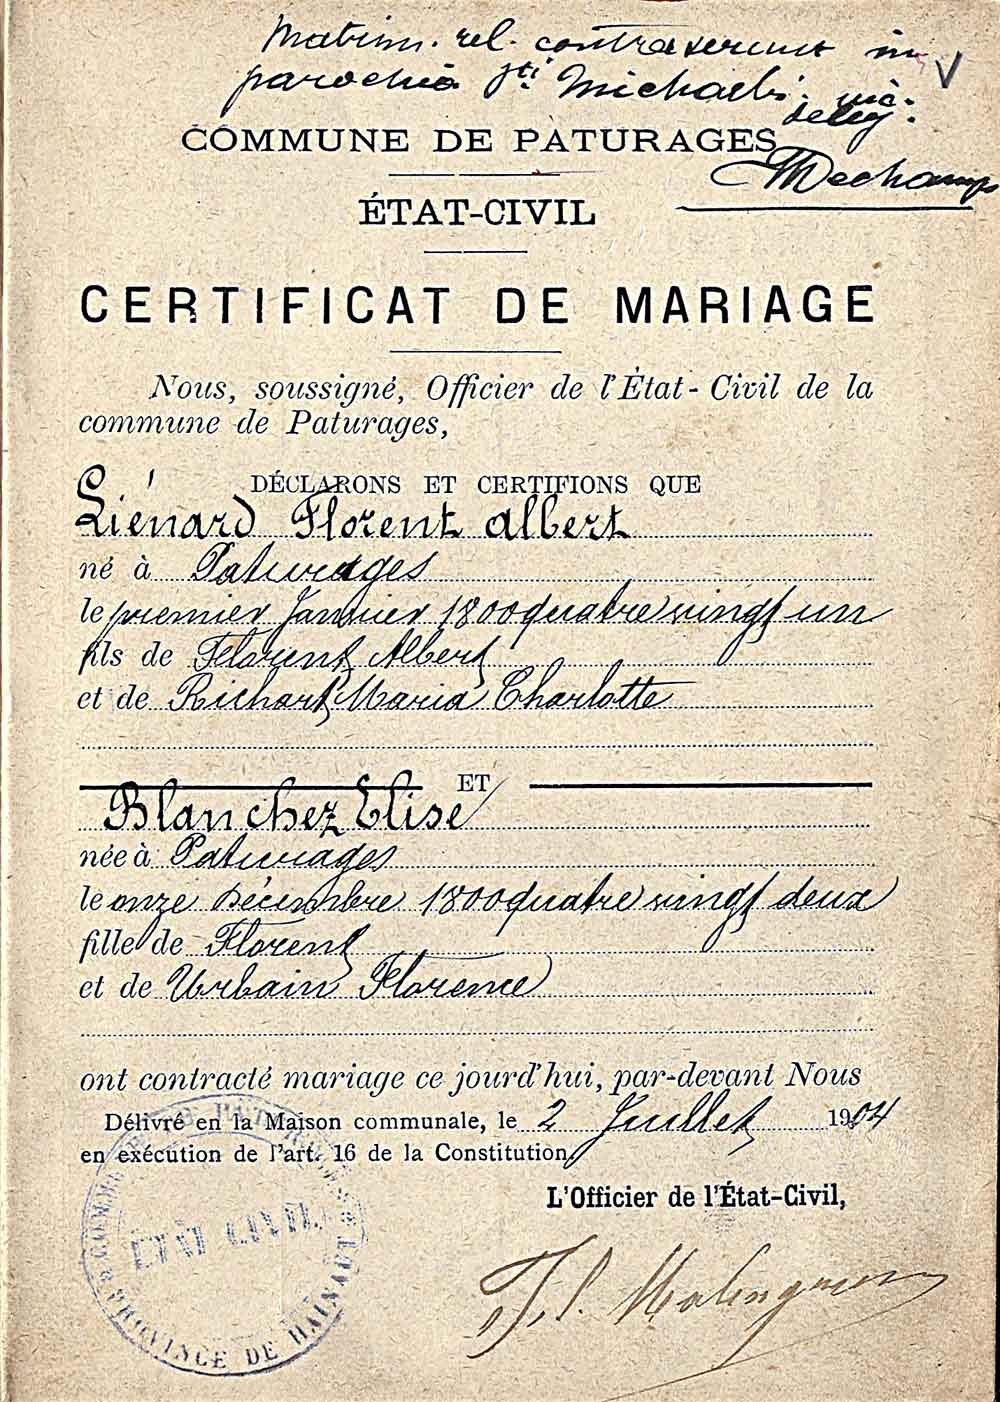 Matrim. rel. contraxerunt in
parochia Sti Michaelis.
COMMUNE DE PATURAGES
ÉTAT-CIVIL
CERTIFICAT DE MARIAGE
Nous, soussigné, Officier de l'État-Civil de la
commune de Paturages,
DÉCLARONS ET CERTIFIONS QUE
Liénard Florent Albert
né à Paturages
le premier Janvier 1800 quatre vingt un
fils de Florent Albert
et de Richart Maria Charlotte
ET
Blanchez Elise
née à Paturages
le onze Décembre 1800 quatre vingt deux
fille de Florent
et de Urbain Florence
ont contracté mariage ce jourd'hui, par-devant Nous
Délivré en la Maison communale, le 2 Juillet 1904
en exécution de l'art. 16 de la Constitution.
L'Officier de l'État-Civil,
COMMUNE DE PATURAGES
ETAT CIVIL
PROVINCE DE HAINAUT